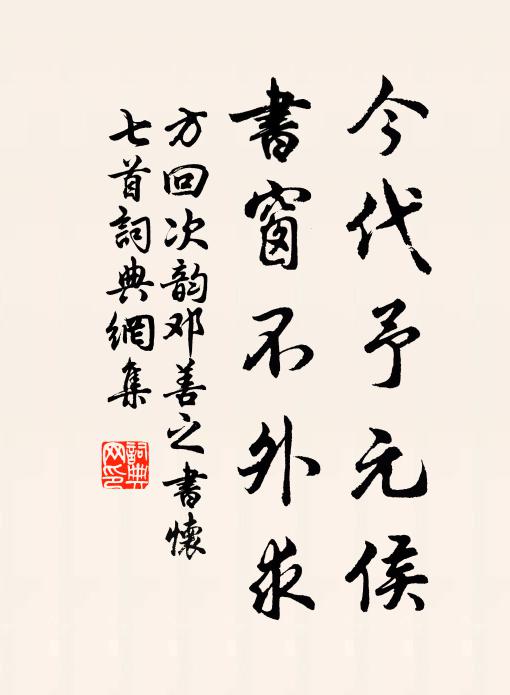 今代予元侯
書窗不外求
方回次韵邓善之書懷
七首詞典網集
詞典網印